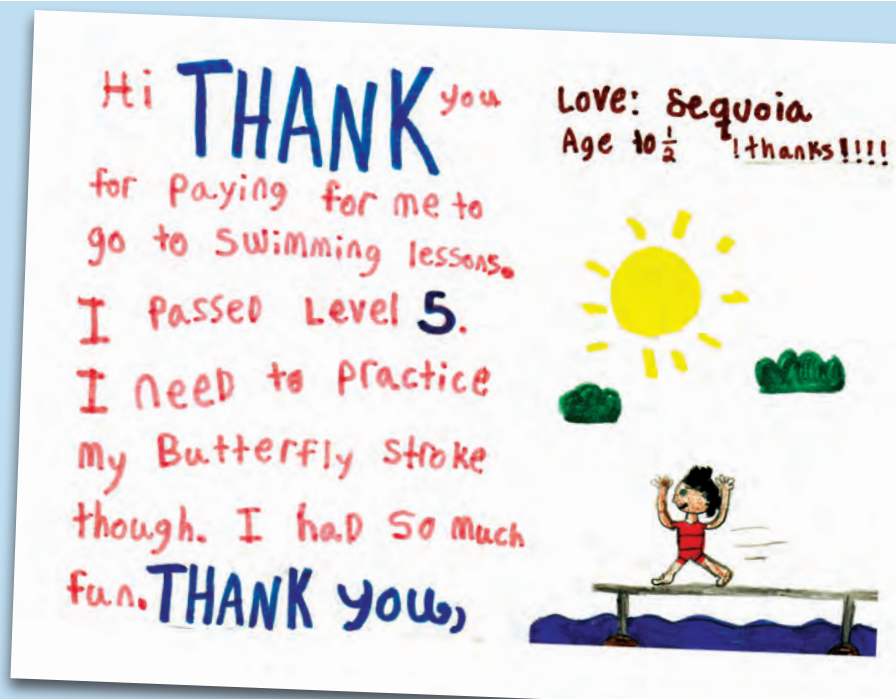 Hi THANK you
for paying for me to
go to swimming lessons.
I passed Level 5.
I need to practice
my Butterfly stroke
though. I had so much
fun. THANK you,
Love: Sequoia
Age 10 ½ !thanks!!!!